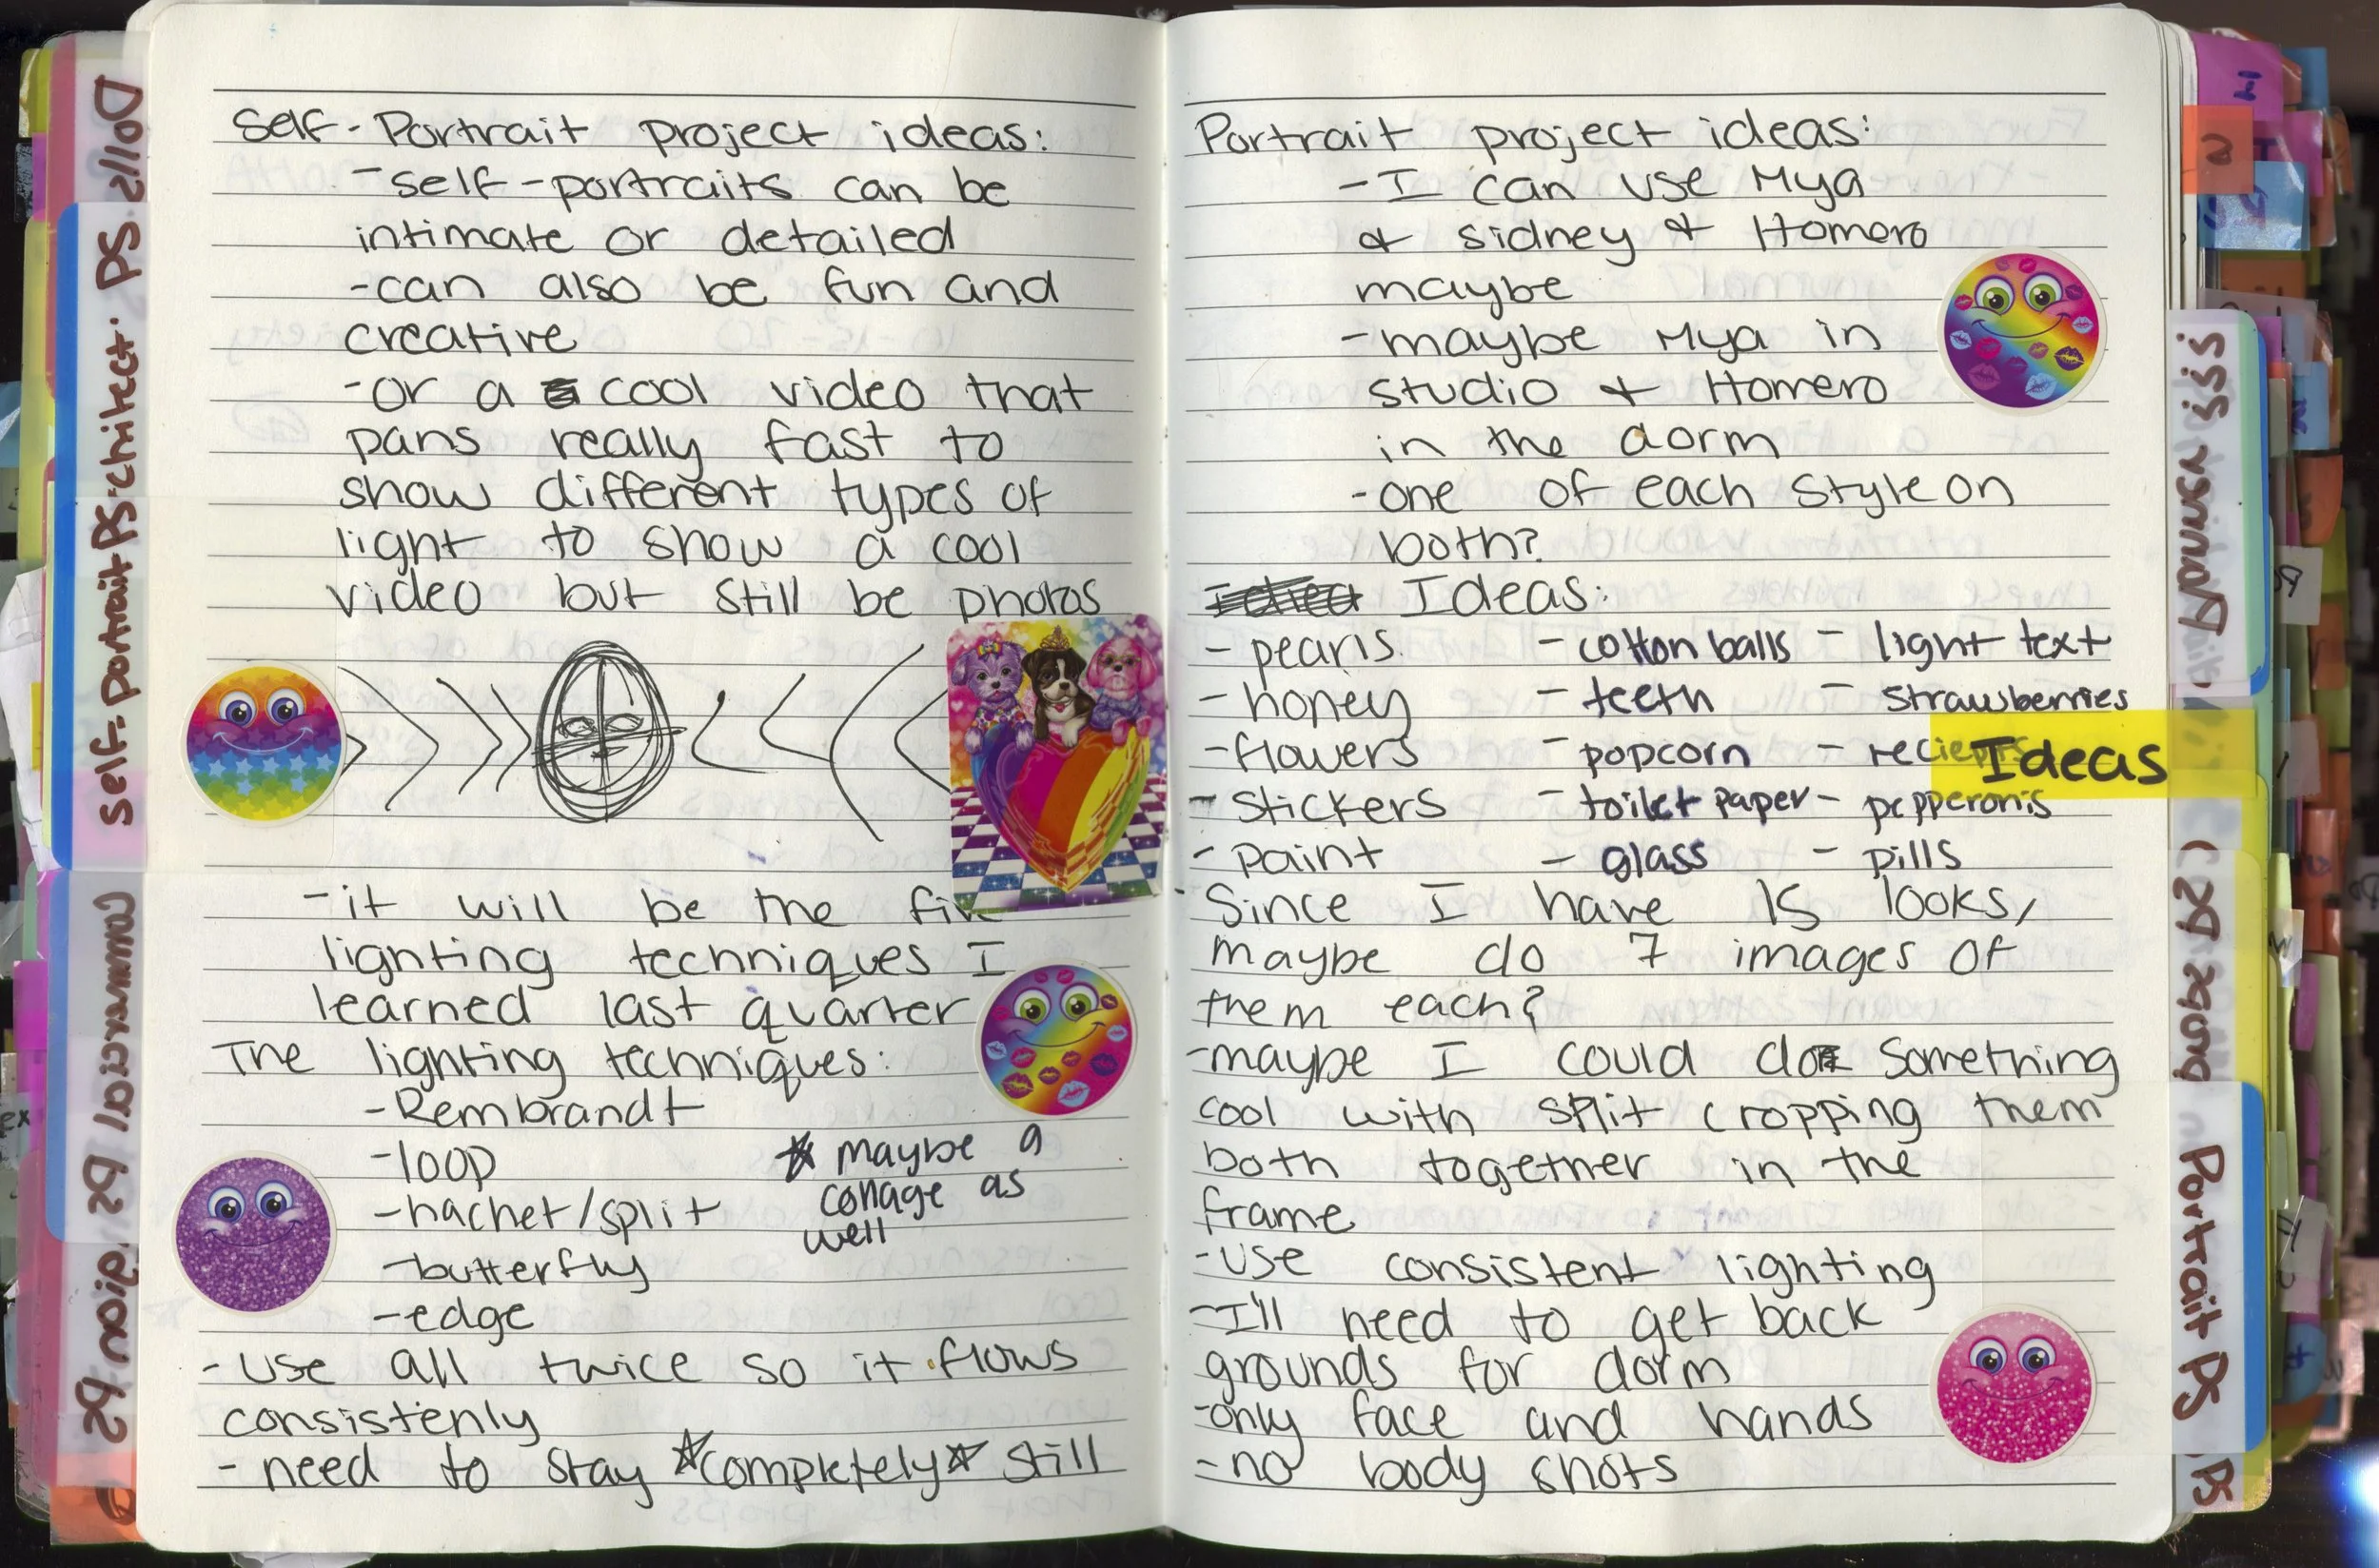 Self-Portrait project ideas:
-self-portraits can be
intimate or detailed
-can also be fun and
creative
-or a cool video that
pans really fast to
show different types of
light to show a cool
video but still be photos
-it will be the
lighting techniques I
learned last quarter
The lighting techniques:
-Rembrandt
-loop
-hachet/split
-butterfly
-edge
maybe a
collage as
well
-use all twice so it flows
consistenly
-need to stay completely still
Portrait project ideas:
-I can use Mya
& sidney & Homero
maybe
-maybe Mya in
studio & Homero
in the dorm
-one of each style on
both?
Ideas:
-pearls -cotton balls -light text
-honey -teeth -strawberries
-flowers -popcorn
-stickers -toilet paper -pepperonis
-paint -glass -pills
-Since I have 15 looks,
maybe do 7 images of
them each?
-maybe I could do something
cool with split cropping them
both together in the
frame
-use consistent lighting
-I'll need to get back
grounds for dorm
-only face and hands
-no body shots
Ideas
Dolls PS
self-portrait PS
Portrait PS
PS